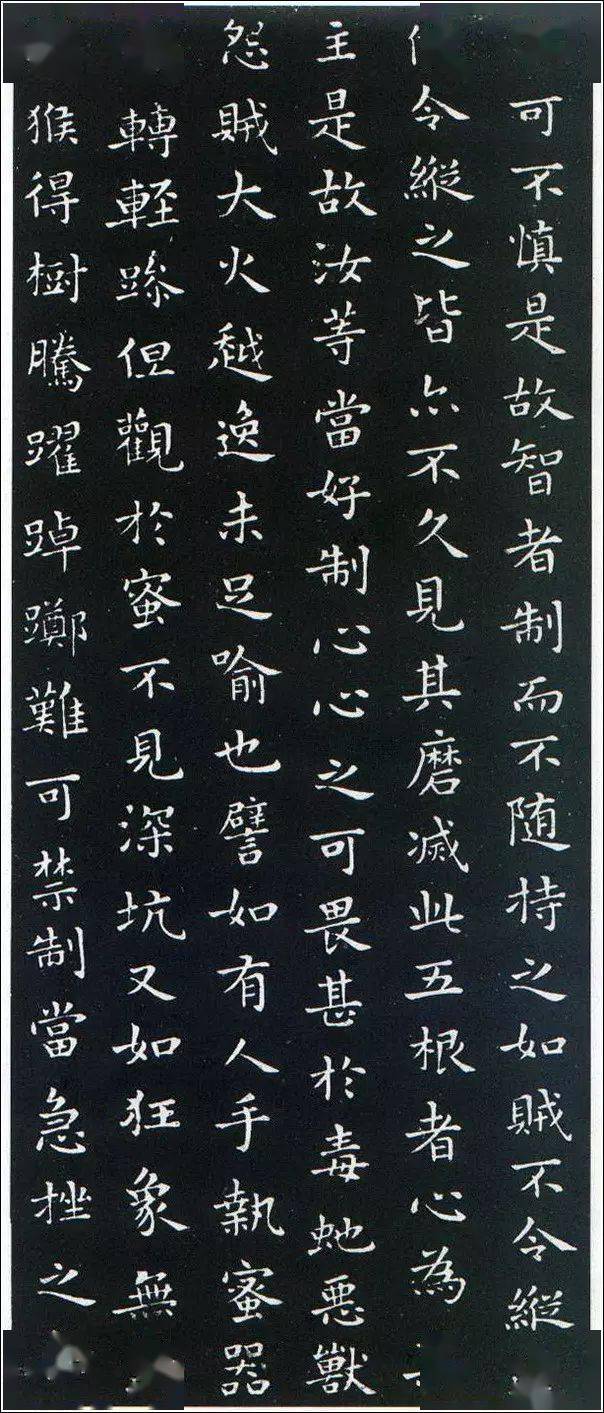 可不慎是故智者制而不随持之如賊不令縱
令縱之皆亦不久見其磨滅此五根者心為
主是故汝等當好制心心之可畏甚於毒虵悪獸
怨賊大火越逸未足喻也譬如有人手執蜜器
轉輕躁但觀於蜜不見深坑又如狂象無
猴得樹騰躍踔躑難可禁制當急挫之